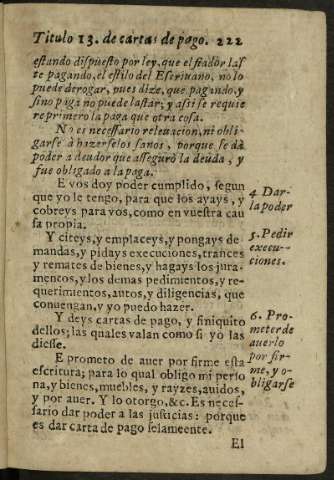 Titulo 13. de cartas de pago. 222
estando dispuesto por ley, que el fiador las
te pagando, el estilo del Escriuano, no lo
puede derogar, pues dize, que pagando, y
sino paga no puede lastar; y assi se requie
re primero la paga que otra cosa.
No es necessario releuacion, ni obli-
garse à hazerselos sanos, porque se dà
poder a deudor que asseguró la deuda, y
fue obligado a la paga.
E vos doy poder cumplido, segun
que yo le tengo, para que los ayays, y
cobreys para vos, como en vuestra cau
sa propia.
4 Dar-
la poder
Y citeys, y emplaceys, y pongays de
mandas, y pidays execuciones, trances
y remates de bienes, y hagays los jura-
mentos, y los demas pedimientos, y re-
querimientos, autos, y diligencias, que
conuengan, y yo puedo hazer.
5. Pedir
execu-
ciones.
Y deys cartas de pago, y finiquito
dellos; las quales valan como si yo las
diesse.
E prometo de auer por firme esta
escritura; para lo qual obligo mi perso
na, y bienes, muebles, y rayzes, auidos,
y por auer. Y lo otorgo, &c. Es neces-
sario dar poder a las justicias: porque
es dar carta de pago solamente.
6. Pro-
meter de
auerlo
por fir-
me, y o-
bligarse
El